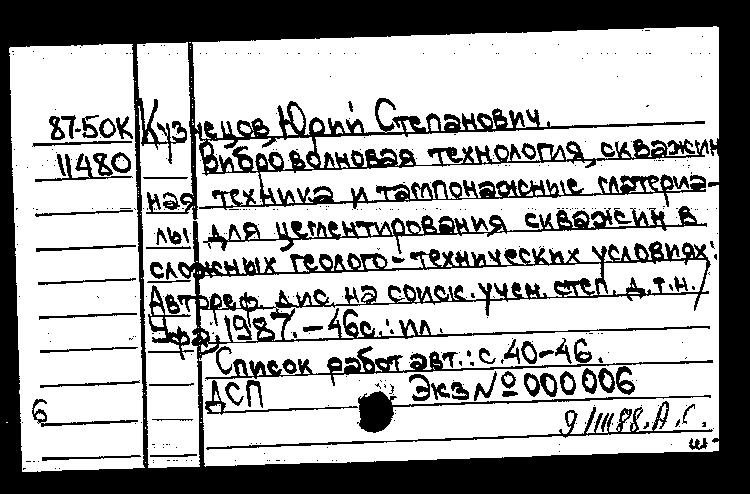 87-50К Кузнецов Юрий Степанович.
11480 Виброволновая технология, скважин
ная техника и тампонажные материа-
лы для цементирования скважин в
сложных геолого-технических условиях:
Автореф. дис. на соиск. учен. степ. д.т.н./
Уфа, 1987. - 46с.: ил.
Список работ авт.: с. 40-46.
ДСП Экз № 000006
6
9/III 88. А.С.
ш-